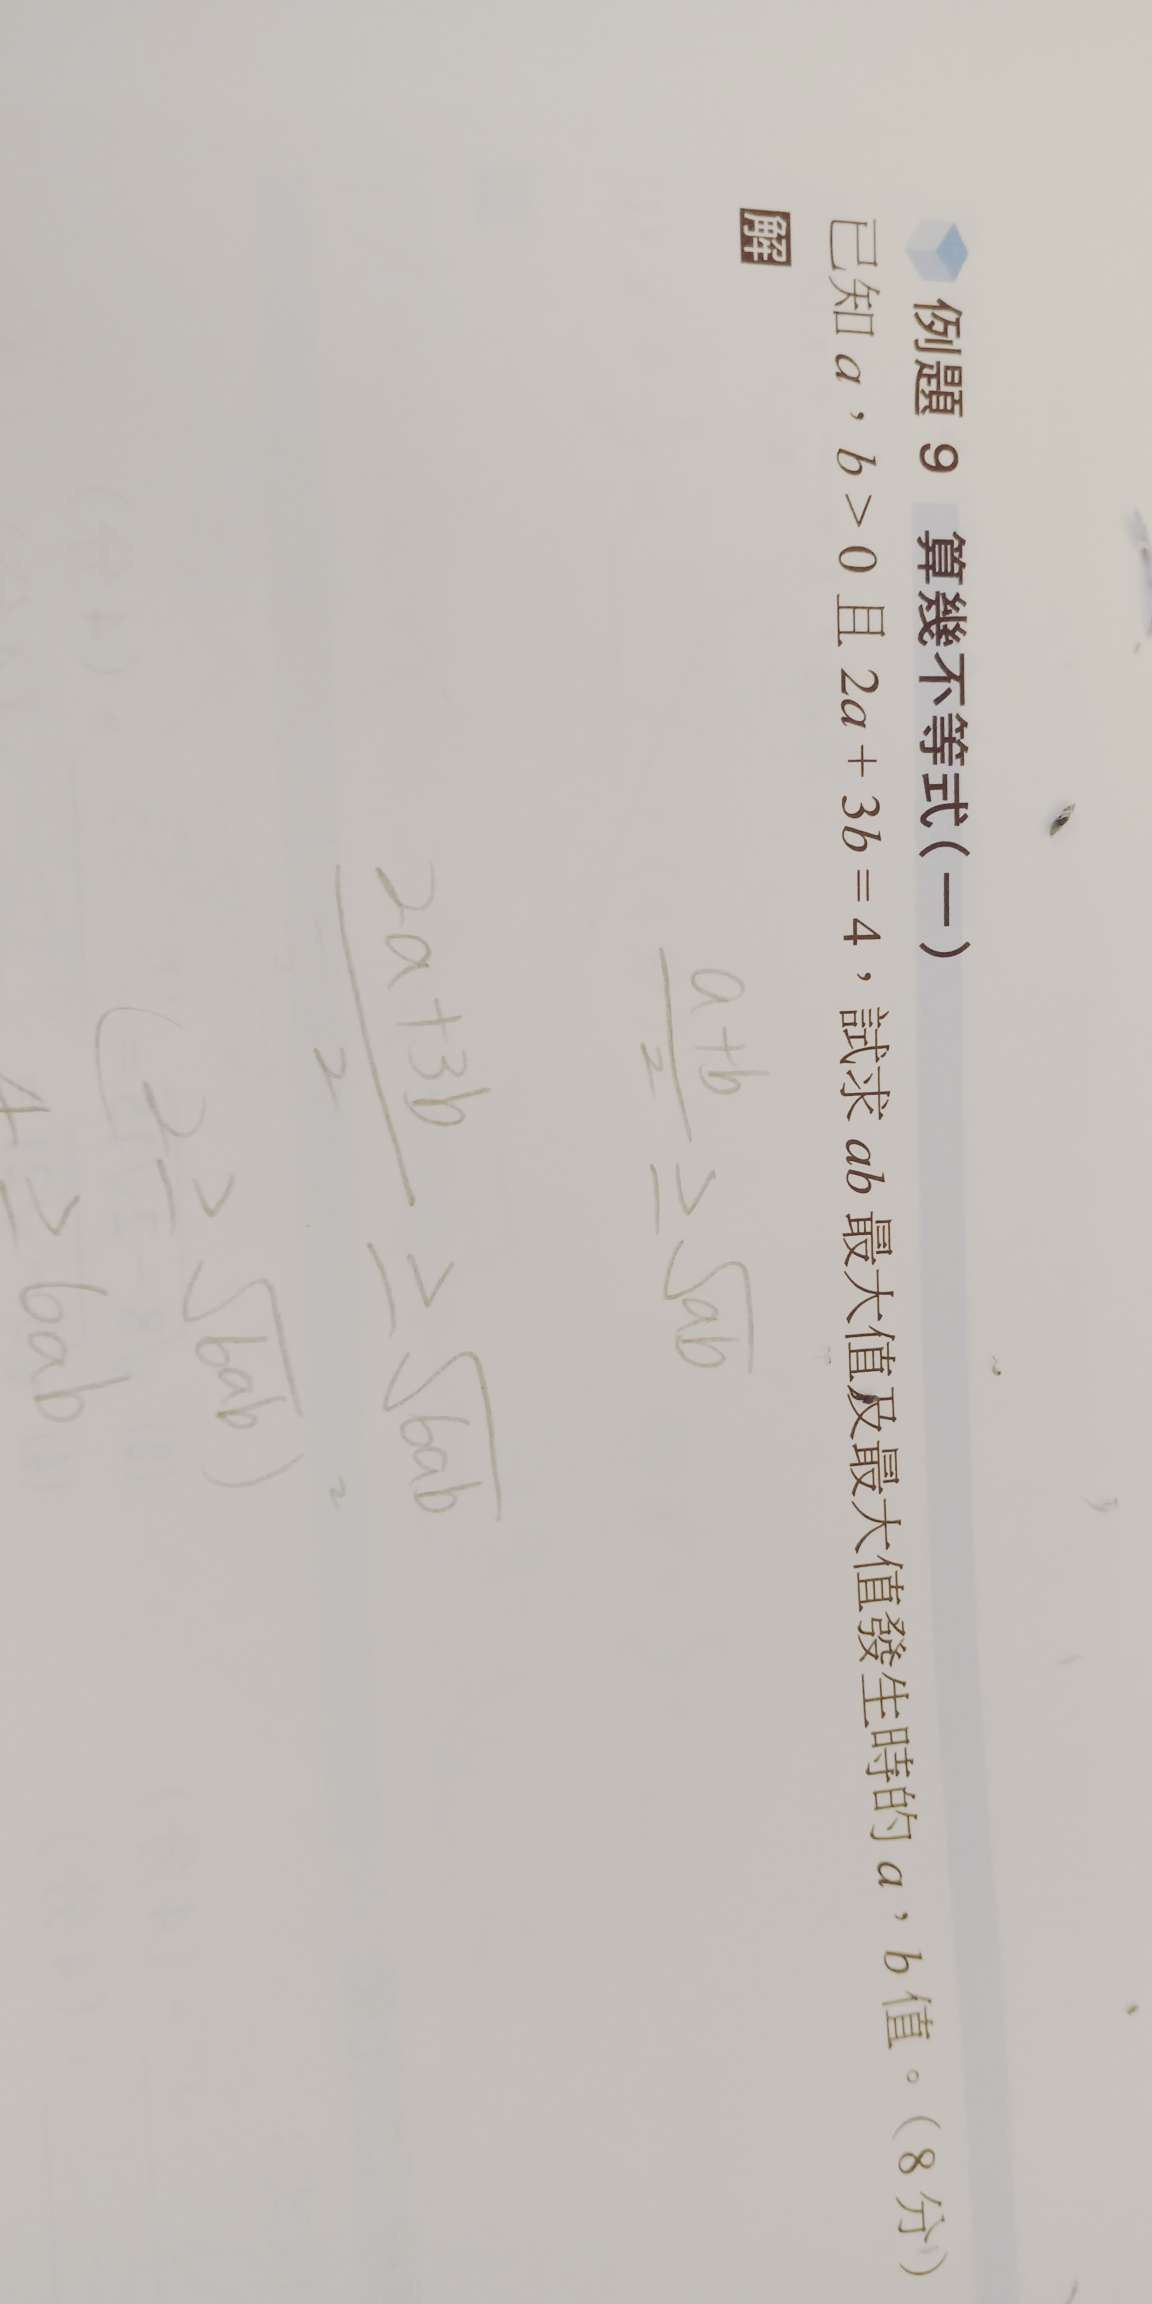 例題 9 算幾不等式(一)
已知 a，b > 0 且 2a + 3b = 4，試求 ab 最大值及最大值發生時的 a，b 值。(8 分)
解
a+b/2 ≥ √ab
2a+3b/2 ≥ √6ab
(2 ≥ √6ab)²
4 ≥ 6ab